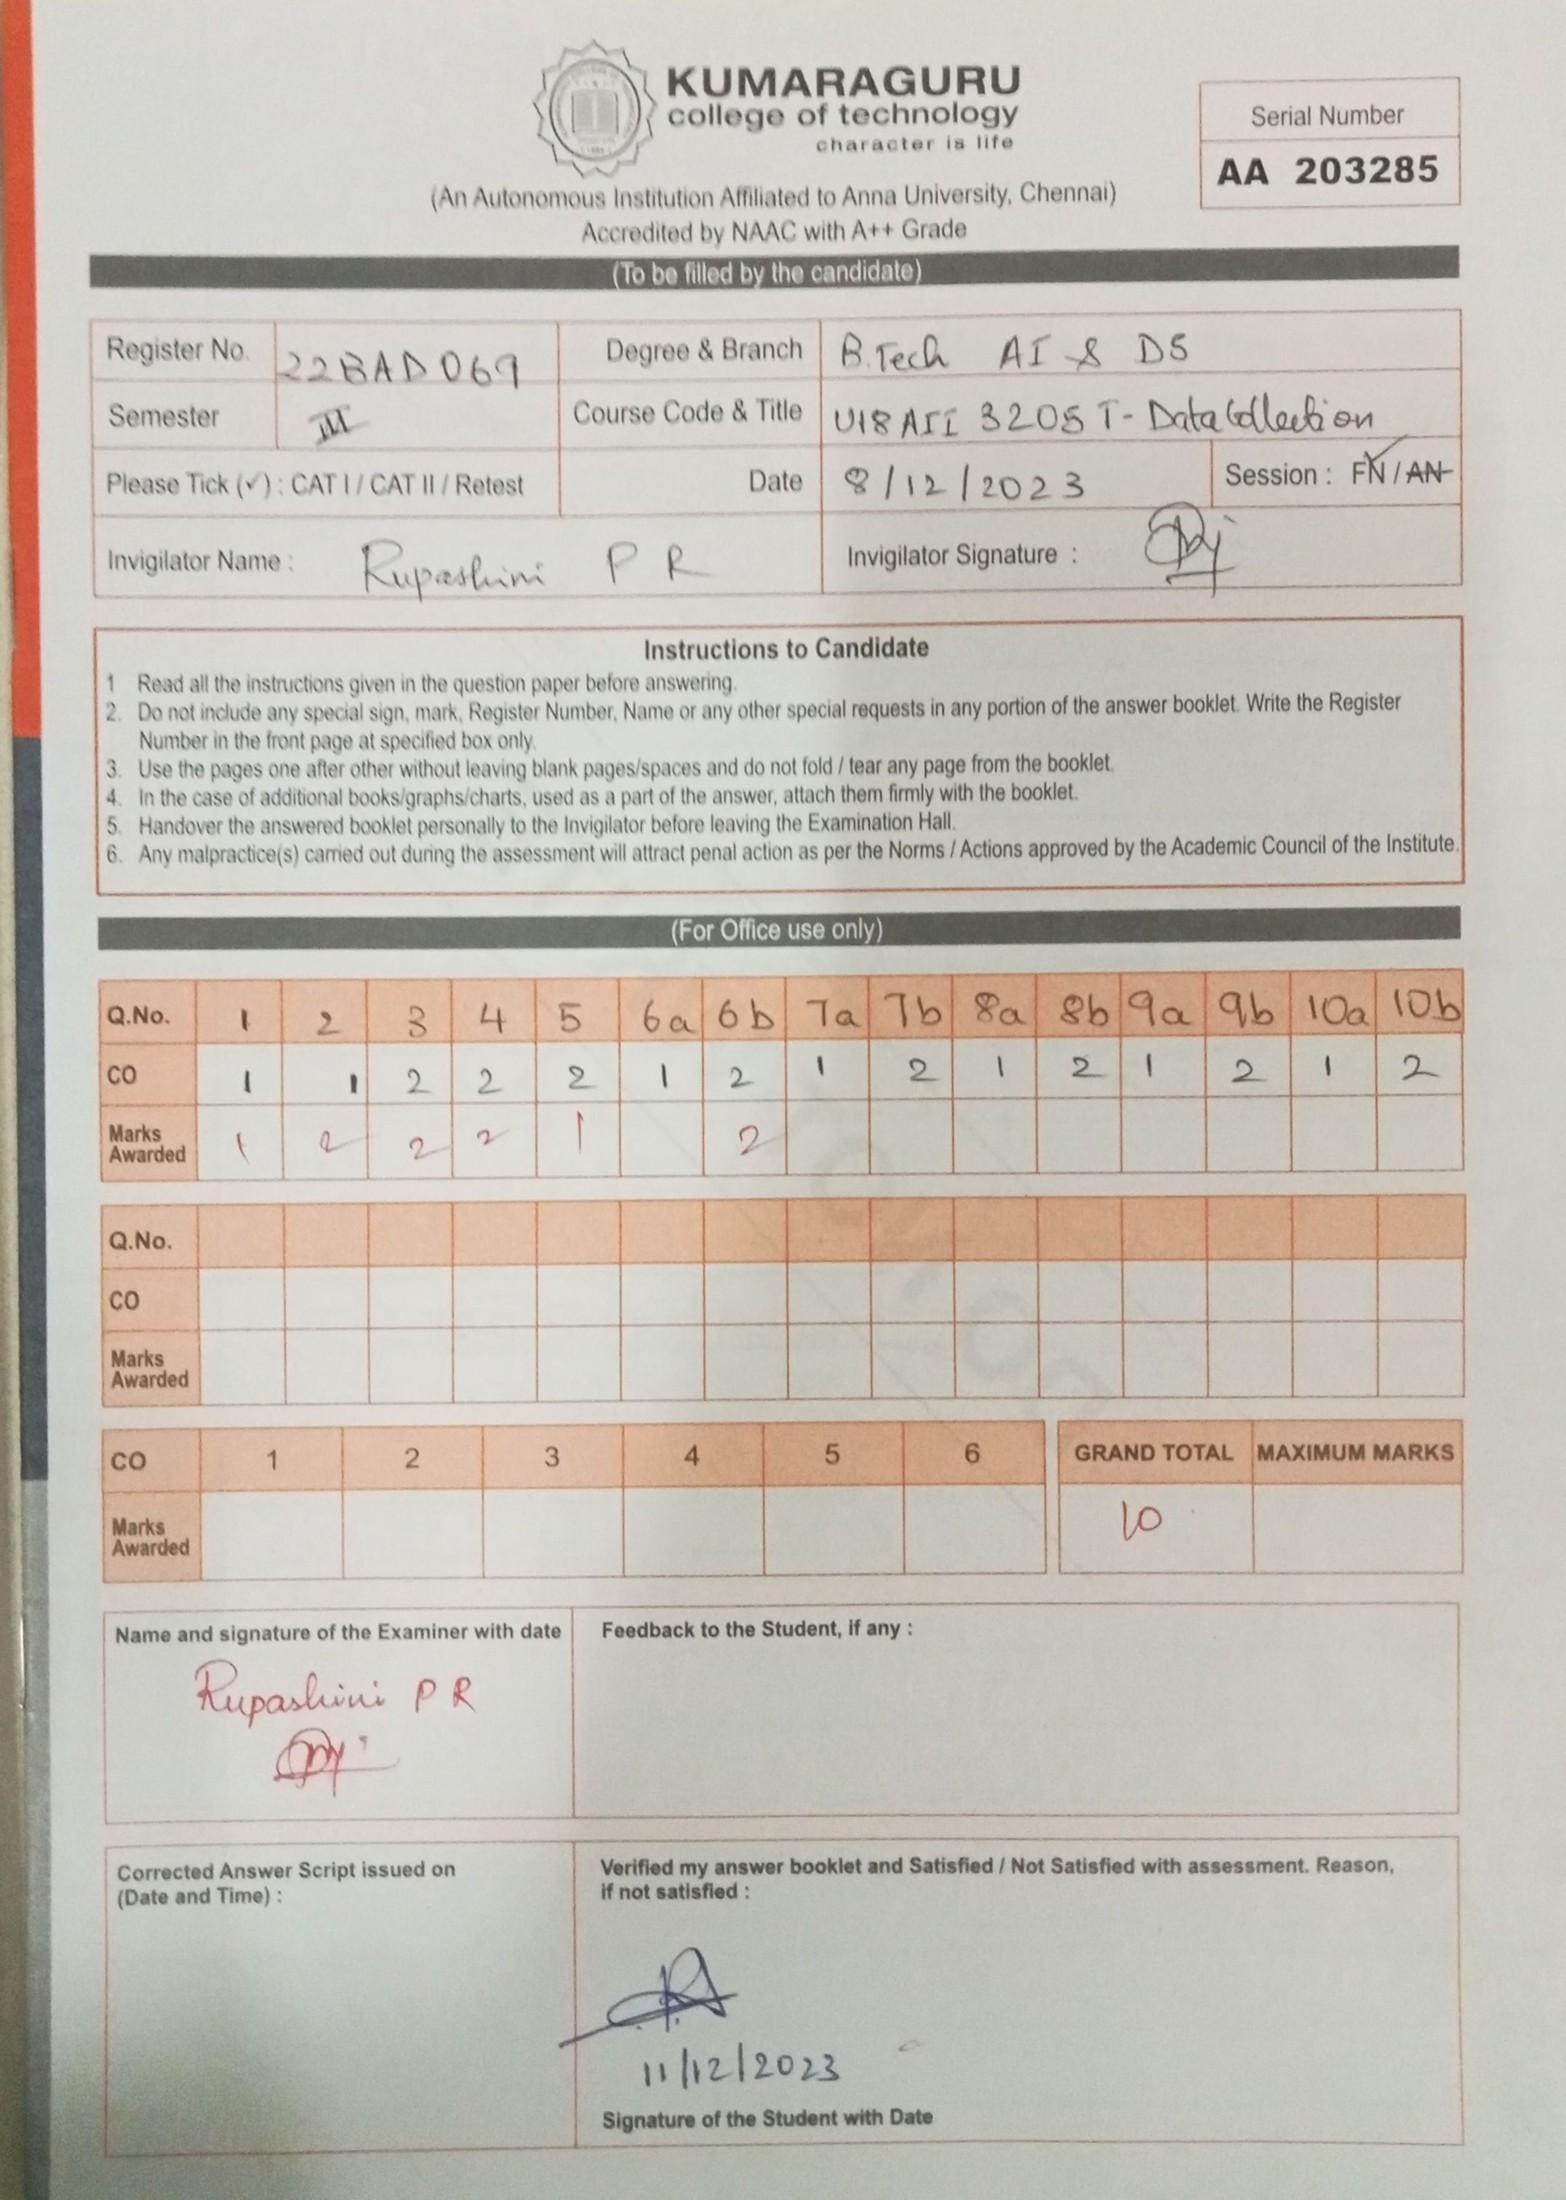 KUMARAGURU
college of technology
character is life
Serial Number
AA 203285
(An Autonomous Institution Affiliated to Anna University, Chennai)
Accredited by NAAC with A++ Grade
(To be filled by the candidate)
Register No. 22BAD069 Degree & Branch B.Tech AI & DS
Semester III Course Code & Title U18AII3205T-Data Collection
Please Tick (✓) : CAT I / CAT II / Retest Date 8/12/2023 Session : FN / AN
Invigilator Name : Rupashini P R Invigilator Signature :
Instructions to Candidate
1 Read all the instructions given in the question paper before answering.
2. Do not include any special sign, mark, Register Number, Name or any other special requests in any portion of the answer booklet. Write the Register
Number in the front page at specified box only.
3. Use the pages one after other without leaving blank pages/spaces and do not fold / tear any page from the booklet.
4. In the case of additional books/graphs/charts, used as a part of the answer, attach them firmly with the booklet.
5. Handover the answered booklet personally to the Invigilator before leaving the Examination Hall.
6. Any malpractice(s) carried out during the assessment will attract penal action as per the Norms / Actions approved by the Academic Council of the Institute.
(For Office use only)
Q.No. 1 2 3 4 5 6a 6b 7a 7b 8a 8b 9a 9b 10a 10b
CO 1 1 2 2 2 1 2 1 2 1 2 1 2 1 2
Marks
Awarded 1 2 2 2 1 2
Q.No.
CO
Marks
Awarded
CO 1 2 3 4 5 6 GRAND TOTAL MAXIMUM MARKS
Marks
Awarded 10
Name and signature of the Examiner with date
Rupashini P R
Feedback to the Student, if any :
Corrected Answer Script issued on
(Date and Time) :
Verified my answer booklet and Satisfied / Not Satisfied with assessment. Reason,
if not satisfied :
11/12/2023
Signature of the Student with Date